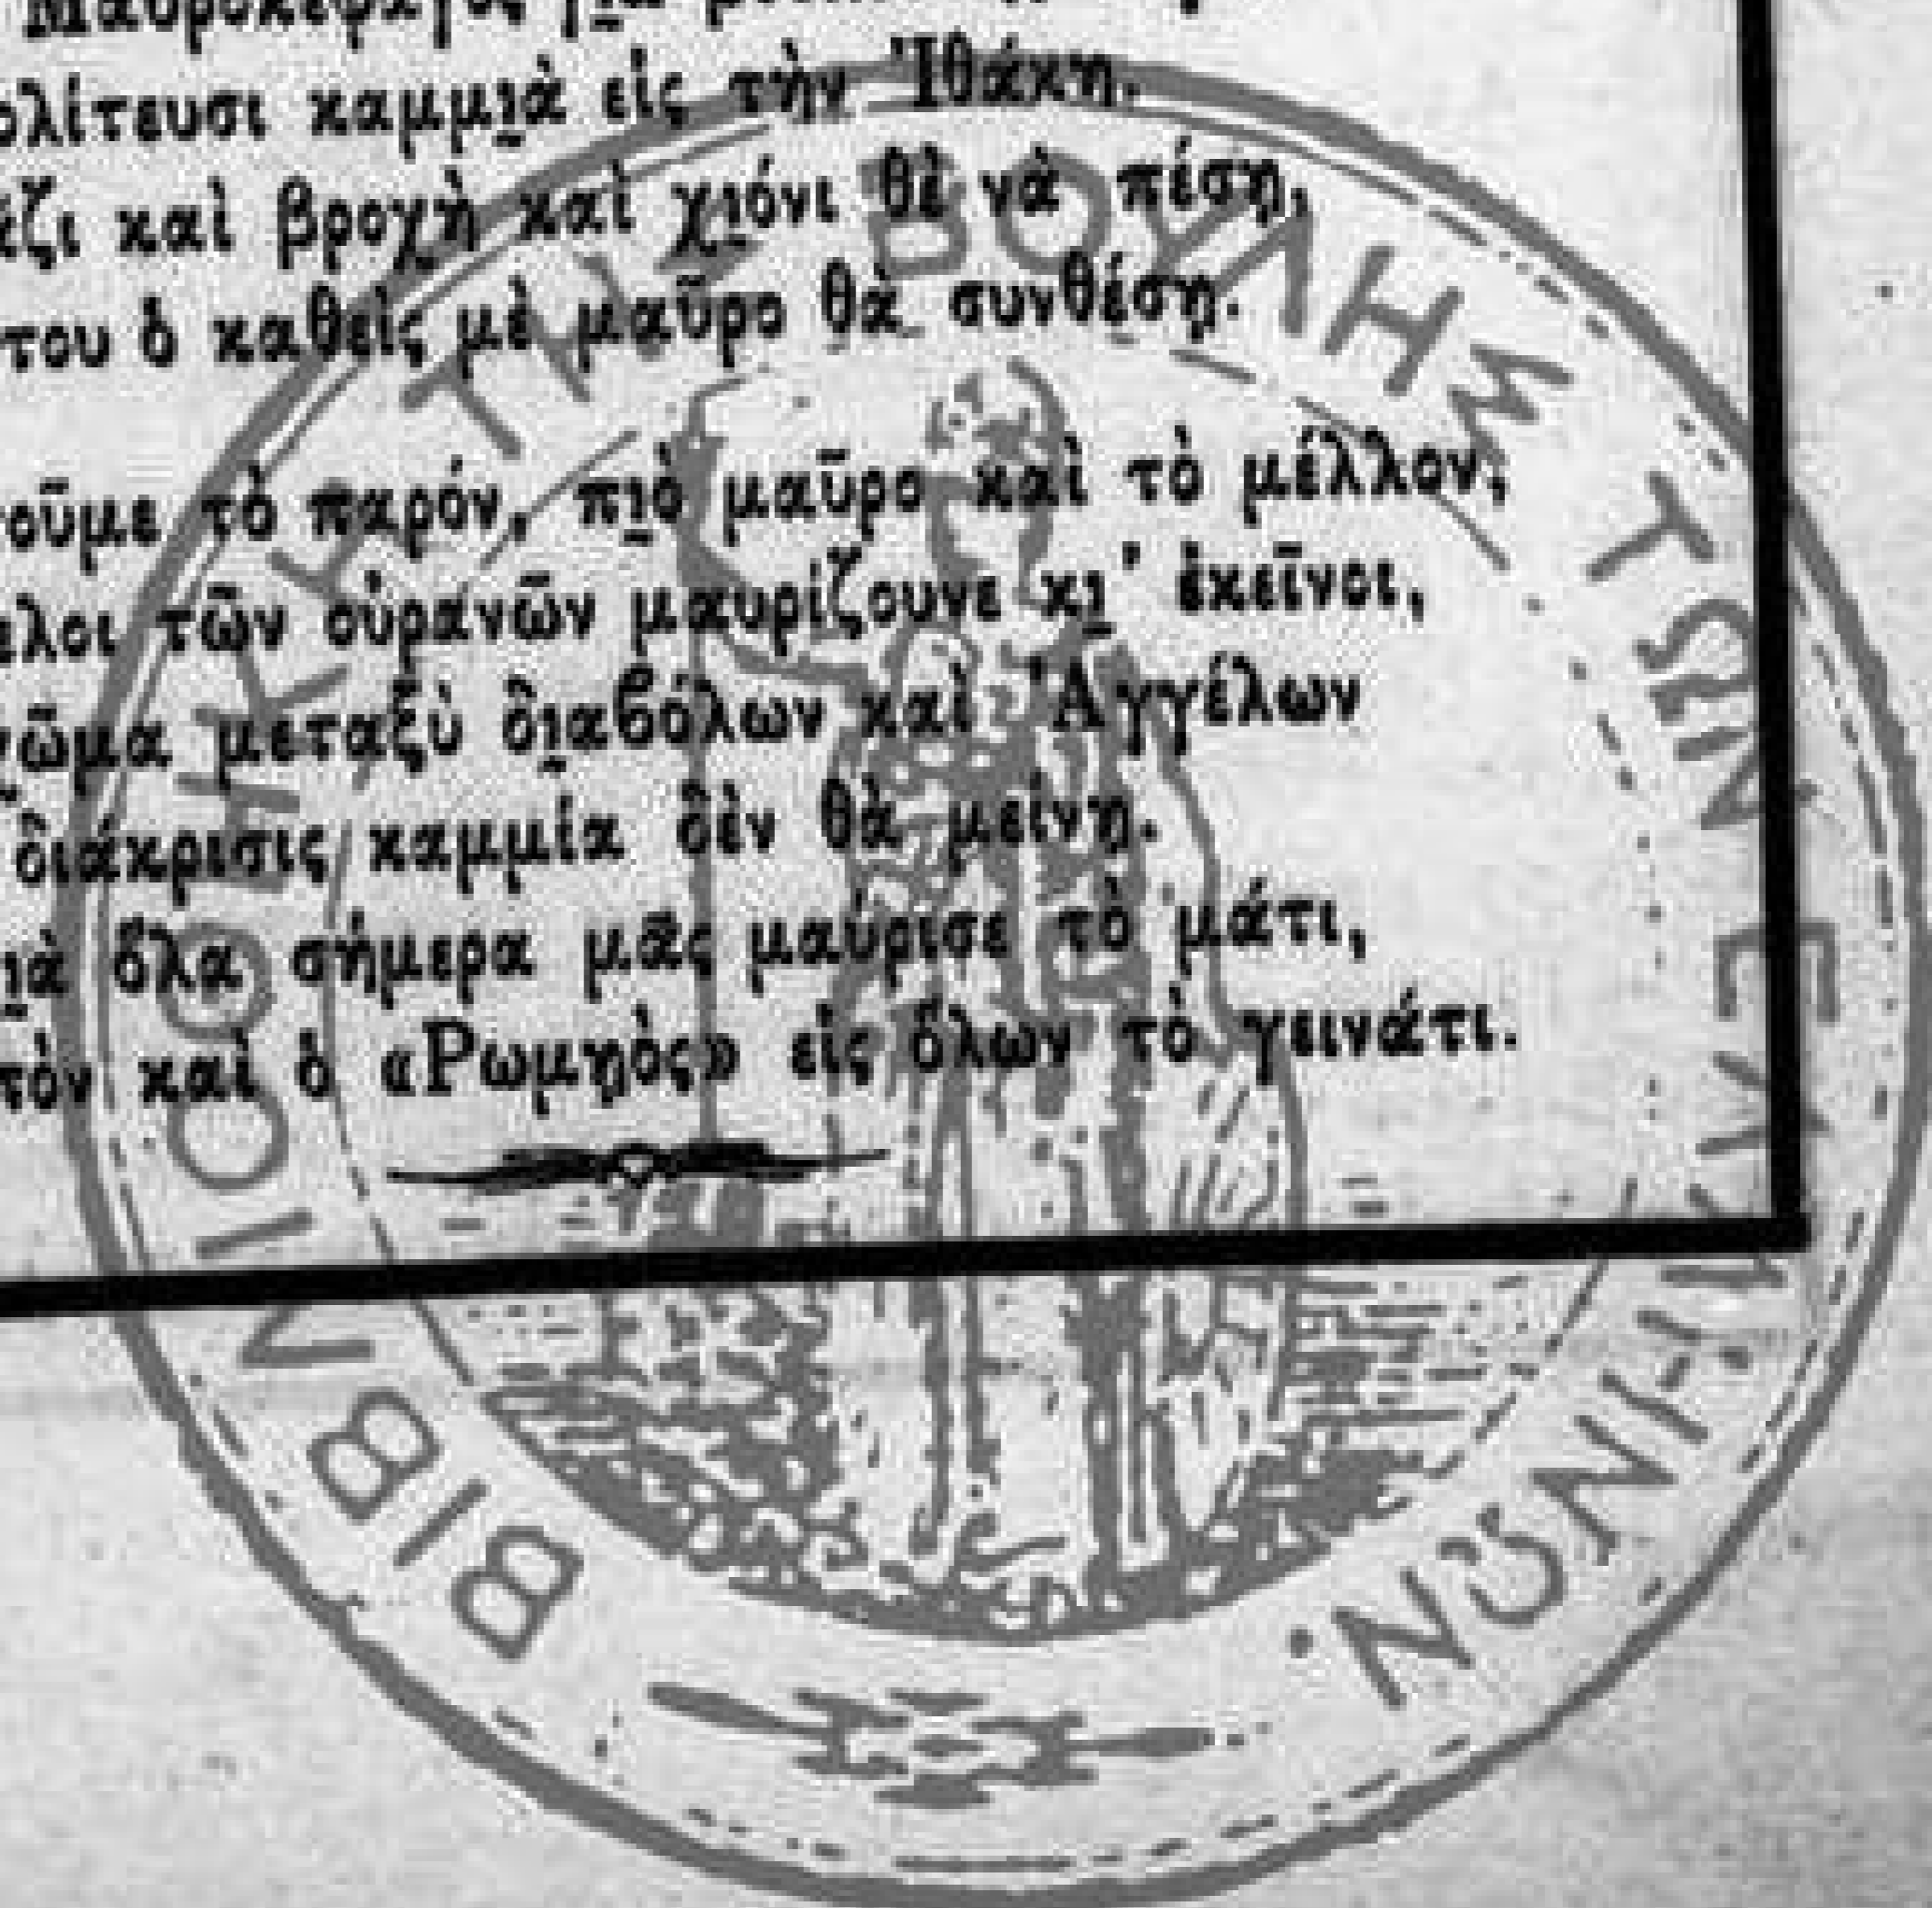 καμμιὰ εἰς τὴν Ἰθάκη.
καὶ βροχὴ καὶ χιόνι θὲ νὰ πέσῃ,
του ὁ καθεὶς μὲ μαῦρο θὰ συνθέσῃ.
τὸ παρόν, πιὸ μαῦρο καὶ τὸ μέλλον,
τῶν οὐρανῶν μαυρίζουνε κι' ἐκεῖνοι,
μεταξὺ διαβόλων καὶ Ἀγγέλων
διάκρισις καμμία δὲν θὰ μείνῃ.
ὅλα σήμερα μᾶς μαύρισε τὸ μάτι,
καὶ ὁ «Ρωμῃὸς» εἰς ὅλων τὸ γεινάτι.
ΒΙΒΛΙΟΘΗΚΗ ΤΗΣ ΒΟΥΛΗΣ ΤΩΝ ΕΛΛΗΝΩΝ.